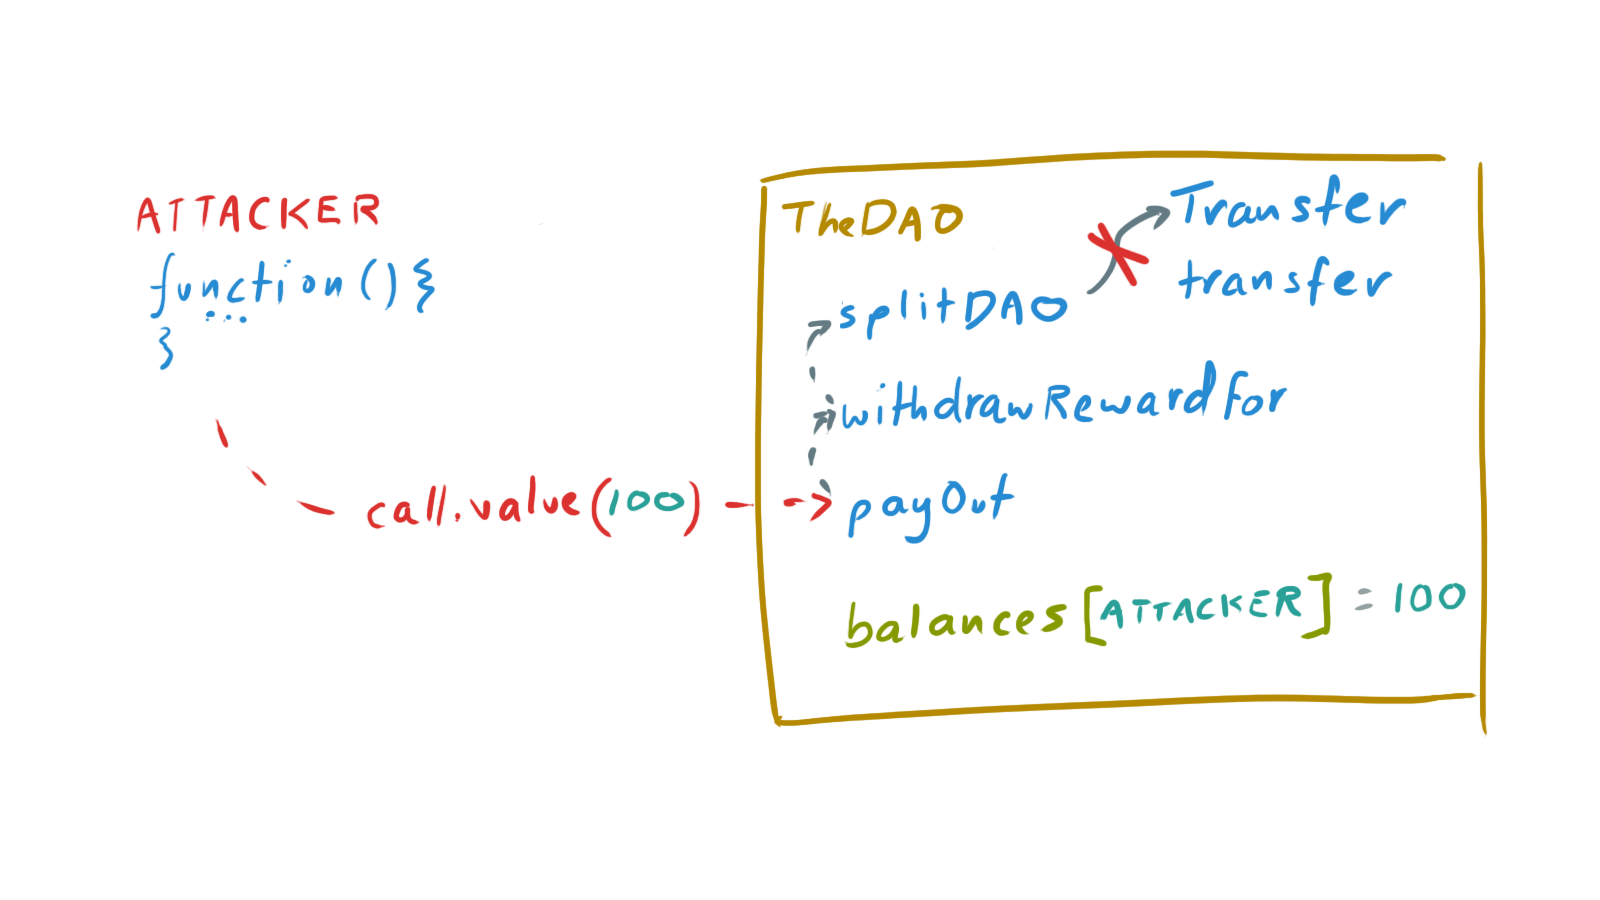 ATTACKER
function(){
...
}
call.value(100)
TheDAO
Transfer
transfer
splitDAO
withdrawRewardFor
payOut
balances[ATTACKER] = 100